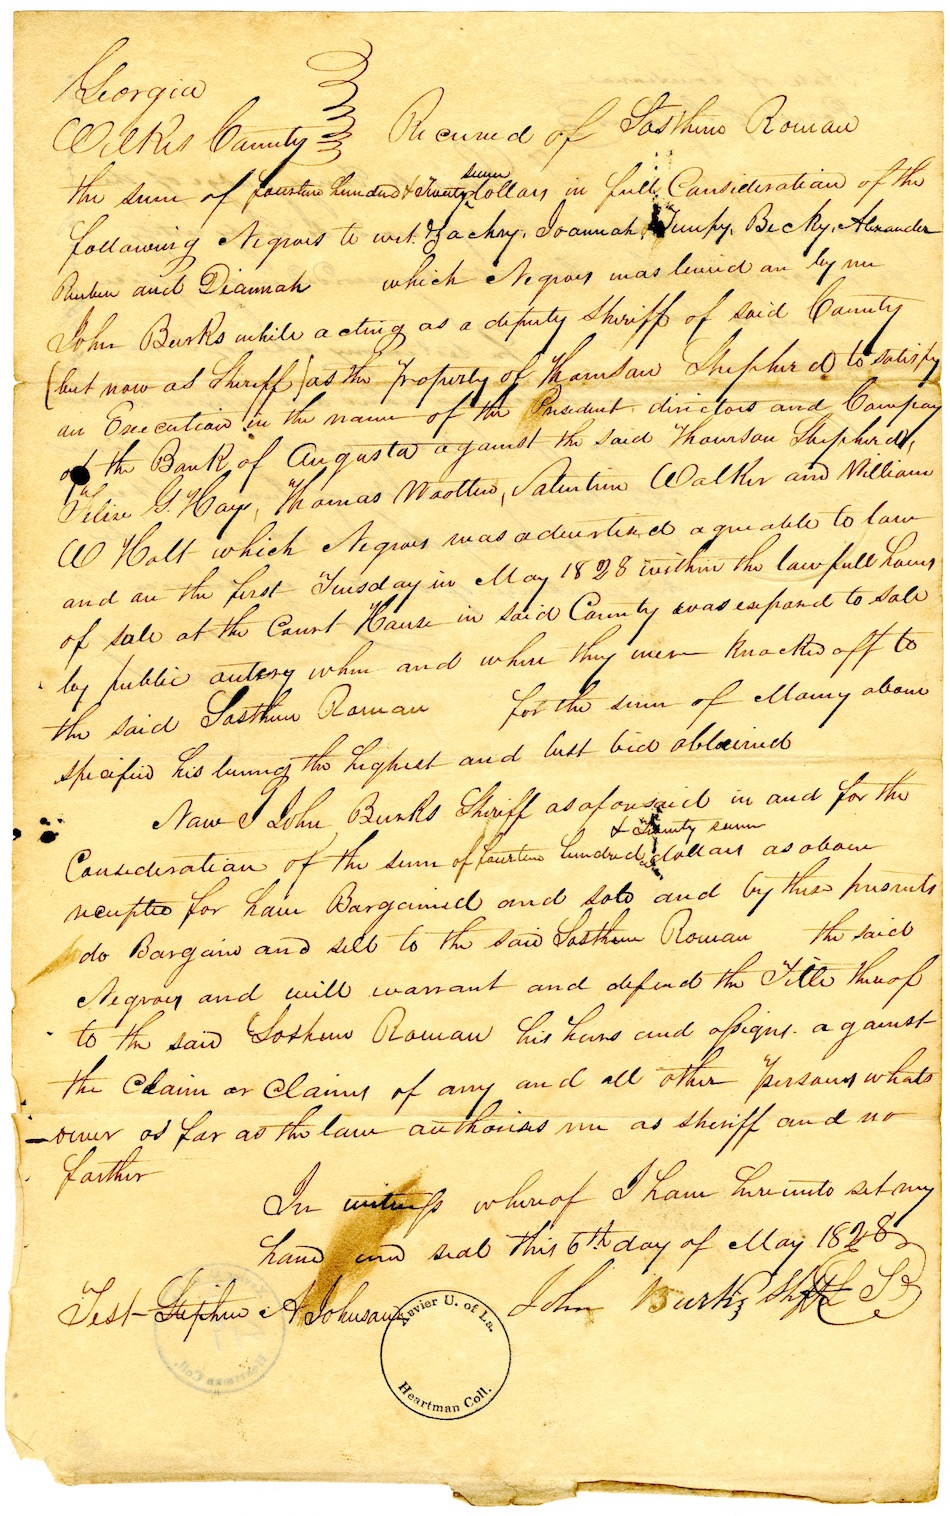 Georgia
Wilkes County Received of Sosthene Roman
the sum of fourteen hundred & Twenty seven dollars in full Consideration of the
following Negroes to wit. Zachry, Joannah, Tempy, Becky, Alexander
Reuben and Diannah which Negroes was levied on by me
John Burks while acting as a deputy Sheriff of said County
(but now as Sheriff) as the Property of Thomson Shepherd to satisfy
an Execution in the name of the President directors and Company
of the Bank of Augusta against the said Thomson Shepherd,
G. Hay, Thomas Wootten, Walker and William
W Holt which Negroes was advertised agreable to law
and on the first Tuesday in May 1828 within the lawfull hours
of sale at the Court House in said County was exposed to sale
by public outcry when and where they were knocked off to
the said Sosthene Roman for the sum of Money above
specified his being the highest and best bid obtained
Now I John Burks Sheriff as aforesaid in and for the
Consideration of the sum of fourteen hundred & Twenty seven dollars as above
receipted for have Bargained and sold and by these presents
do Bargain and sell to the said Sosthene Roman the said
Negroes and will warrant and defend the Title thereof
to the said Sosthene Roman his heirs and assigns against
the Claim or Claims of any and all other persons whats
oever as far as the law authorises me as sheriff and no
farther
In witness whereof I have hereunto set my
hand and seal this 6th day of May 1828
Test Stephen A Johnson John Burks Shff L S
Xavier U. of La.
Heartman Coll.